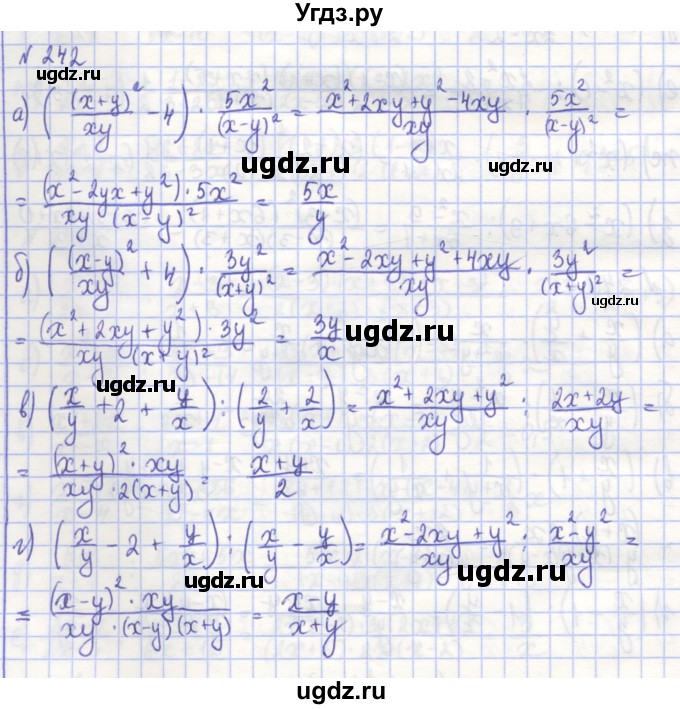 Угдз.ру
№ 242
ugdz.ru ugdz.ru
а) ((x+y)²/xy - 4) · 5x²/(x-y)² = (x²+2xy+y²-4xy)/xy · 5x²/(x-y)² =
ugdz.ru ugdz.ru
= (x²-2yx+y²)·5x²/xy (x-y)² = 5x/y
ugdz.ru
б) ((x-y)²/xy + 4) · 3y²/(x+y)² = (x²-2xy+y²+4xy)/xy · 3y²/(x+y)² =
ugdz.ru ugdz.ru
= (x²+2xy+y²)·3y²/xy (x+y)² = 3y/x
ugdz.ru
ugdz.ru
в) (x/y + 2 + y/x) : (2/y + 2/x) = (x²+2xy+y²)/xy : (2x+2y)/xy =
ugdz.ru
= (x+y)²·xy/xy·2(x+y) = (x+y)/2
ugdz.ru
г) (x/y - 2 + y/x) : (x/y - y/x) = (x²-2xy+y²)/xy : (x²-y²)/xy =
ugdz.ru
ugdz.ru
= (x-y)²·xy/xy·(x-y)(x+y) = (x-y)/(x+y)
ugdz.ru
ugdz.ru